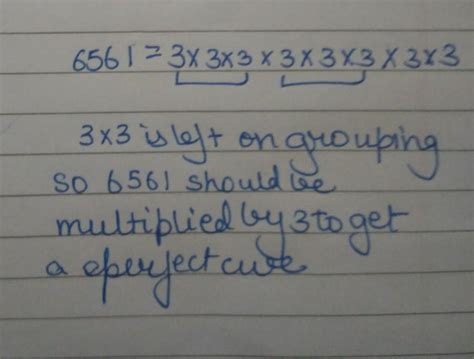 6561 = 3×3×3 × 3×3×3 × 3×3
3×3 is left on grouping
so 6561 should be
multiplied by 3 to get
a perfect cube